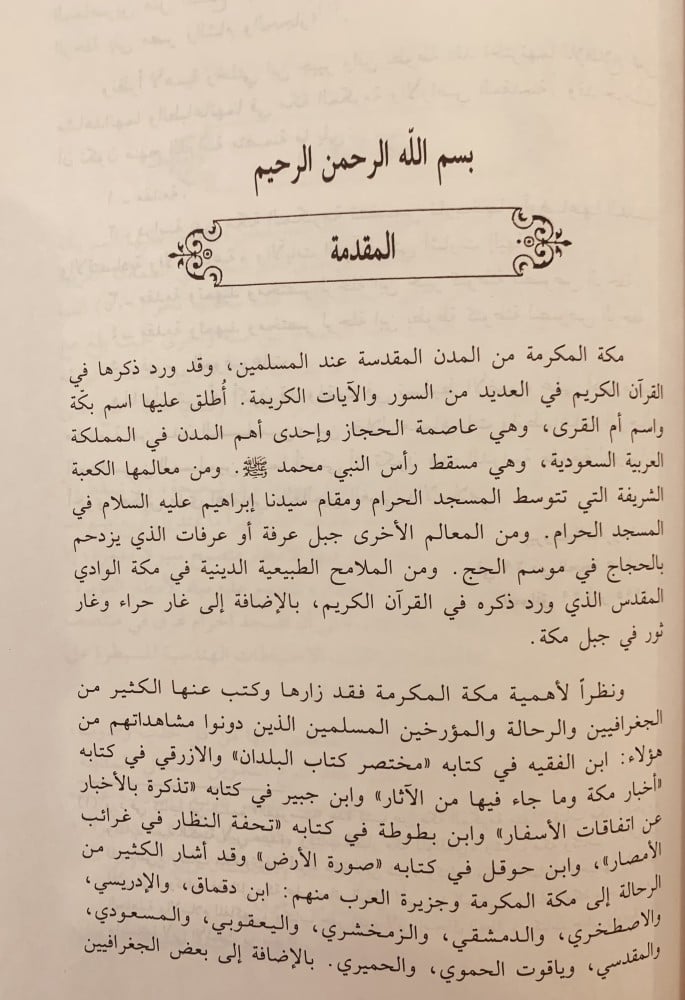 بسم الله الرحمن الرحيم
المقدمة
مكة المكرمة من المدن المقدسة عند المسلمين، وقد ورد ذكرها في
القرآن الكريم في العديد من السور والآيات الكريمة. أُطلق عليها اسم بكّة
واسم أم القرى، وهي عاصمة الحجاز وإحدى أهم المدن في المملكة
العربية السعودية، وهي مسقط رأس النبي محمد ﷺ. ومن معالمها الكعبة
الشريفة التي تتوسط المسجد الحرام ومقام سيدنا إبراهيم عليه السلام في
المسجد الحرام. ومن المعالم الأخرى جبل عرفة أو عرفات الذي يزدحم
بالحجاج في موسم الحج. ومن الملامح الطبيعية الدينية في مكة الوادي
المقدس الذي ورد ذكره في القرآن الكريم، بالإضافة إلى غار حراء وغار
ثور في جبل مكة.
ونظراً لأهمية مكة المكرمة فقد زارها وكتب عنها الكثير من
الجغرافيين والرحالة والمؤرخين المسلمين الذين دونوا مشاهداتهم من
هؤلاء: ابن الفقيه في كتابه «مختصر كتاب البلدان» والازرقي في كتابه
«أخبار مكة وما جاء فيها من الآثار» وابن جبير في كتابه «تذكرة بالأخبار
عن اتفاقات الأسفار» وابن بطوطة في كتابه «تحفة النظار في غرائب
الأمصار»، وابن حوقل في كتابه «صورة الأرض» وقد أشار الكثير من
الرحالة إلى مكة المكرمة وجزيرة العرب منهم: ابن دقماق، والإدريسي،
والاصطخري، والدمشقي، والزمخشري، واليعقوبي، والمسعودي،
والمقدسي، وياقوت الحموي، والحميري. بالإضافة إلى بعض الجغرافيين